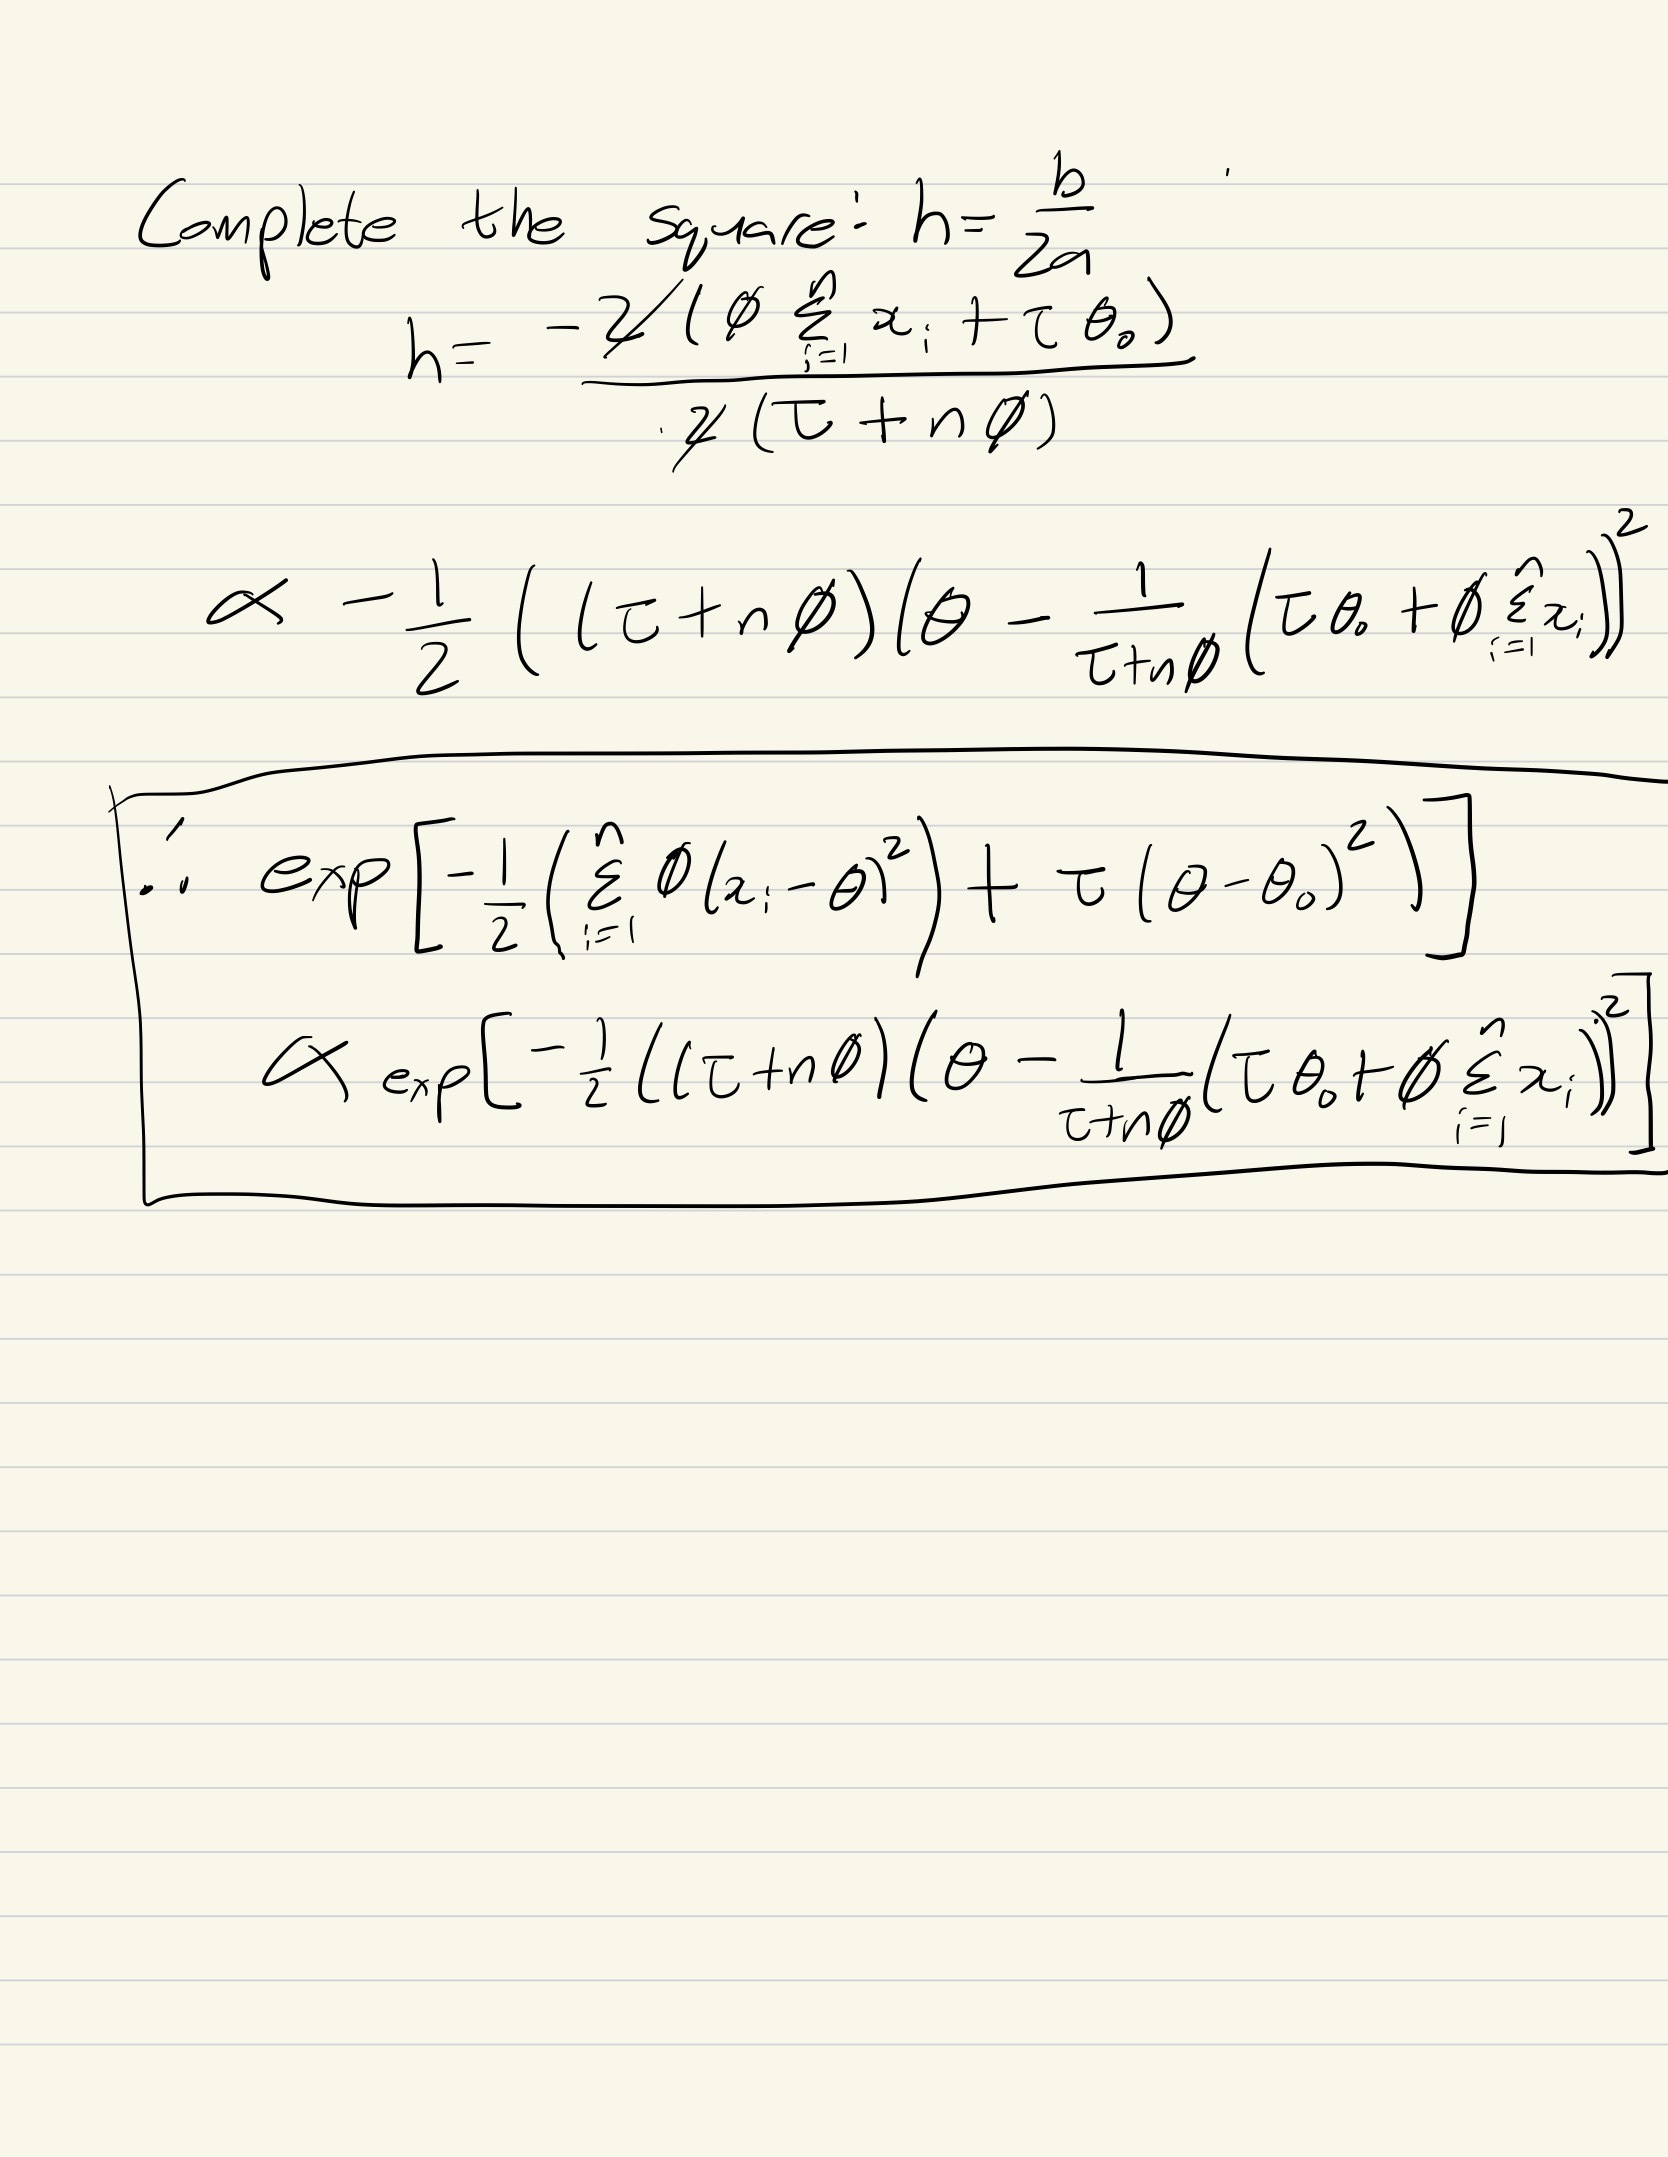 Complete the square: h = b/2a
h = -2(φ Σ_{i=1}^{n} x_i + τ θ_0) / 2(τ + nφ)
∝ -1/2 ((τ + nφ)(θ - 1/(τ+nφ) (τθ_0 + φ Σ_{i=1}^{n} x_i))^2
∴ exp[-1/2 (Σ_{i=1}^{n} φ(x_i - θ)^2) + τ(θ - θ_0)^2)]
∝ exp[-1/2 ((τ+nφ)(θ - 1/(τ+nφ) (τ θ_0 + φ Σ_{i=1}^{n} x_i))^2]